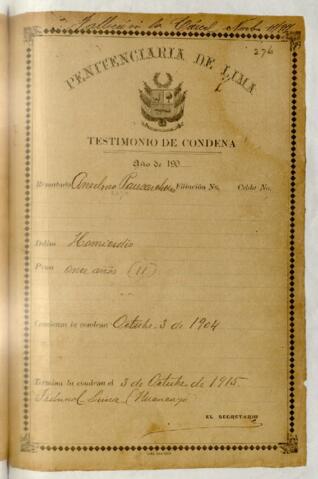 Falleció en la Cárcel
276
PENITENCIARIA DE LIMA
TESTIMONIO DE CONDENA
Año de 190
Rematado Anselmo Filiación No. Celda No.
Delito Homicidio
Pena once años (11)
Comienza la condena Octubre 3 de 1904
Termina la condena el 3 de Octubre de 1915.
Tribunal Huancayo
EL SECRETARIO